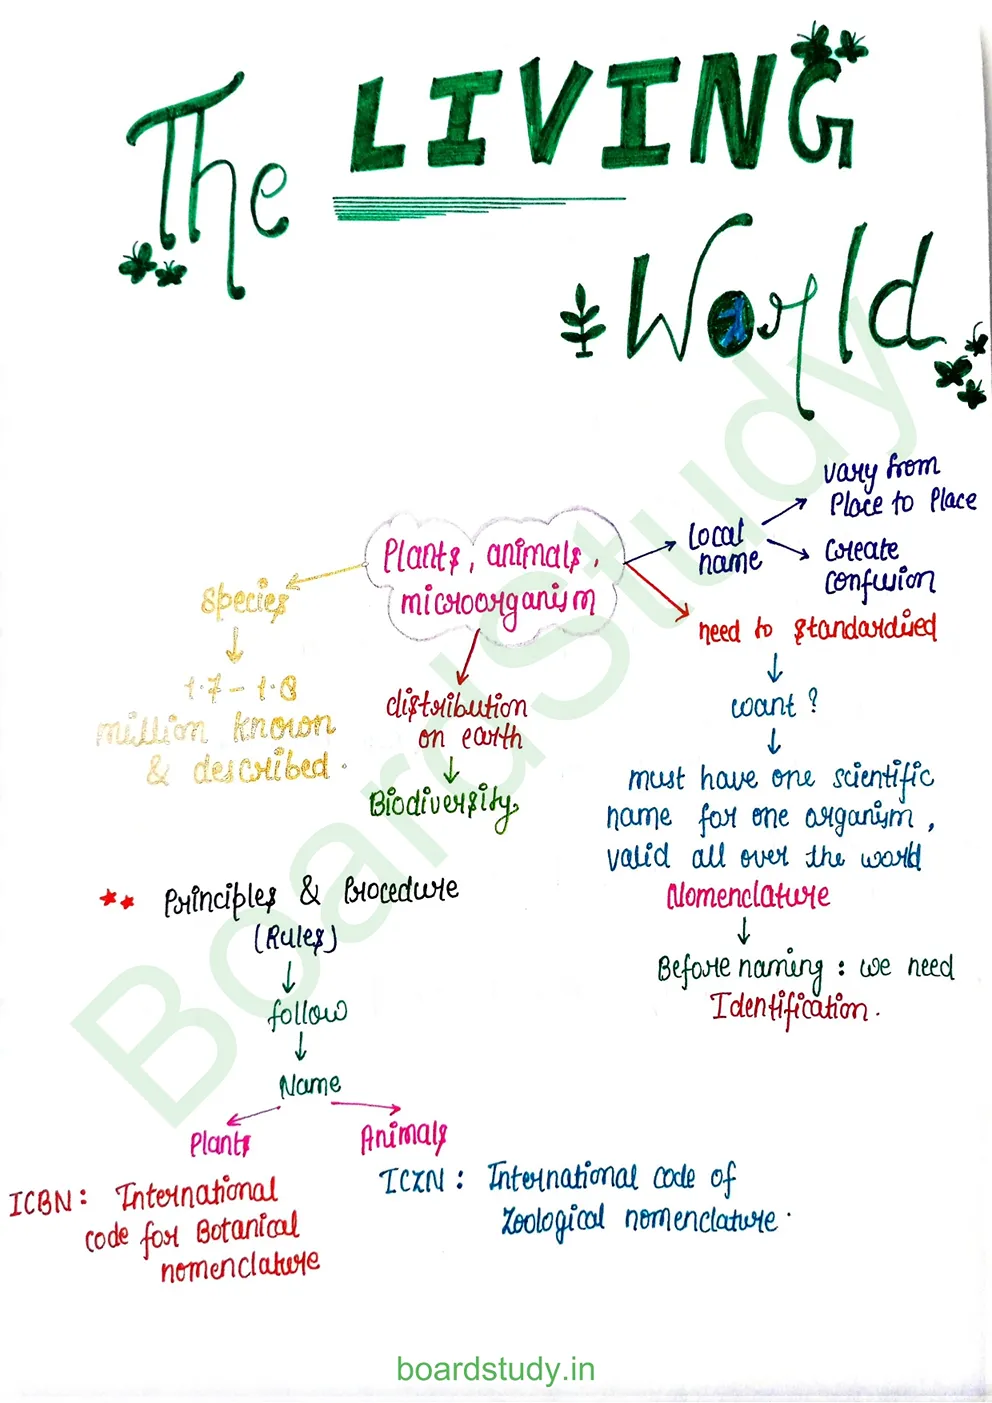 The LIVING
World
Plants, animals,
microorganism
Species
1.7 – 1.8
million known
& described.
distribution
on earth
Biodiversity
Local
name
vary from
Place to Place
Create
confusion
need to standardised
want ?
must have one scientific
name for one organism,
valid all over the world
Nomenclature
Before naming : we need
Identification.
** Principles & Procedure
(Rules)
follow
Name
Plants
Animals
ICBN : International
code for Botanical
nomenclature
ICZN : International code of
Zoological nomenclature.
BoardStudy
boardstudy.in